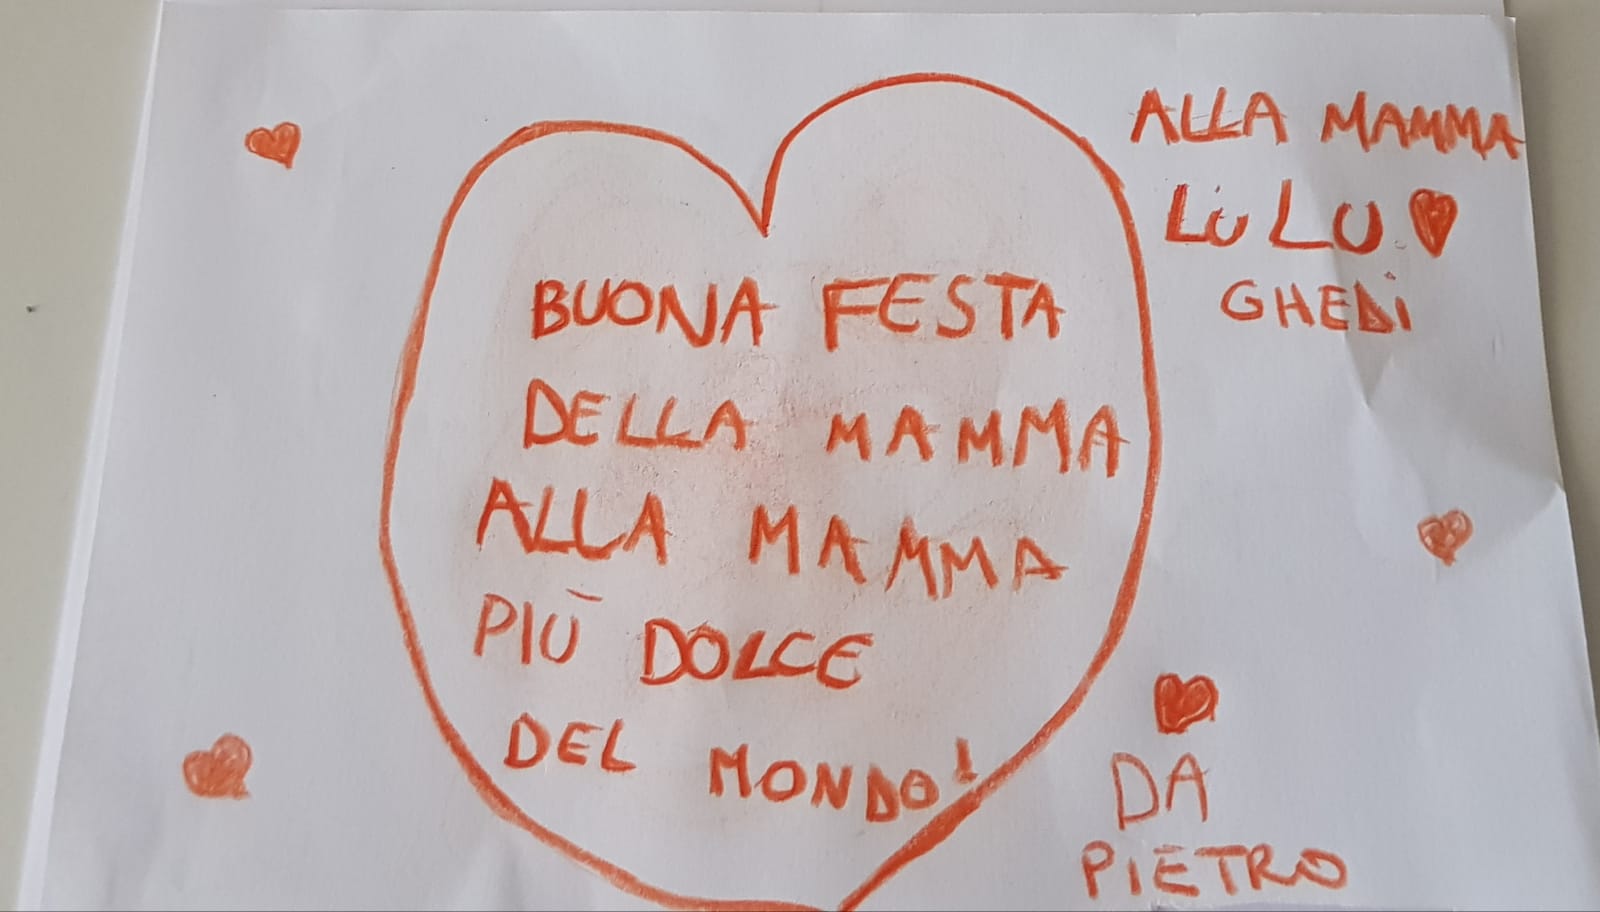 ALLA MAMMA
LULU
GHEDI
BUONA FESTA
DELLA MAMMA
ALLA MAMMA
PIÙ DOLCE
DEL MONDO!
DA
PIETRO